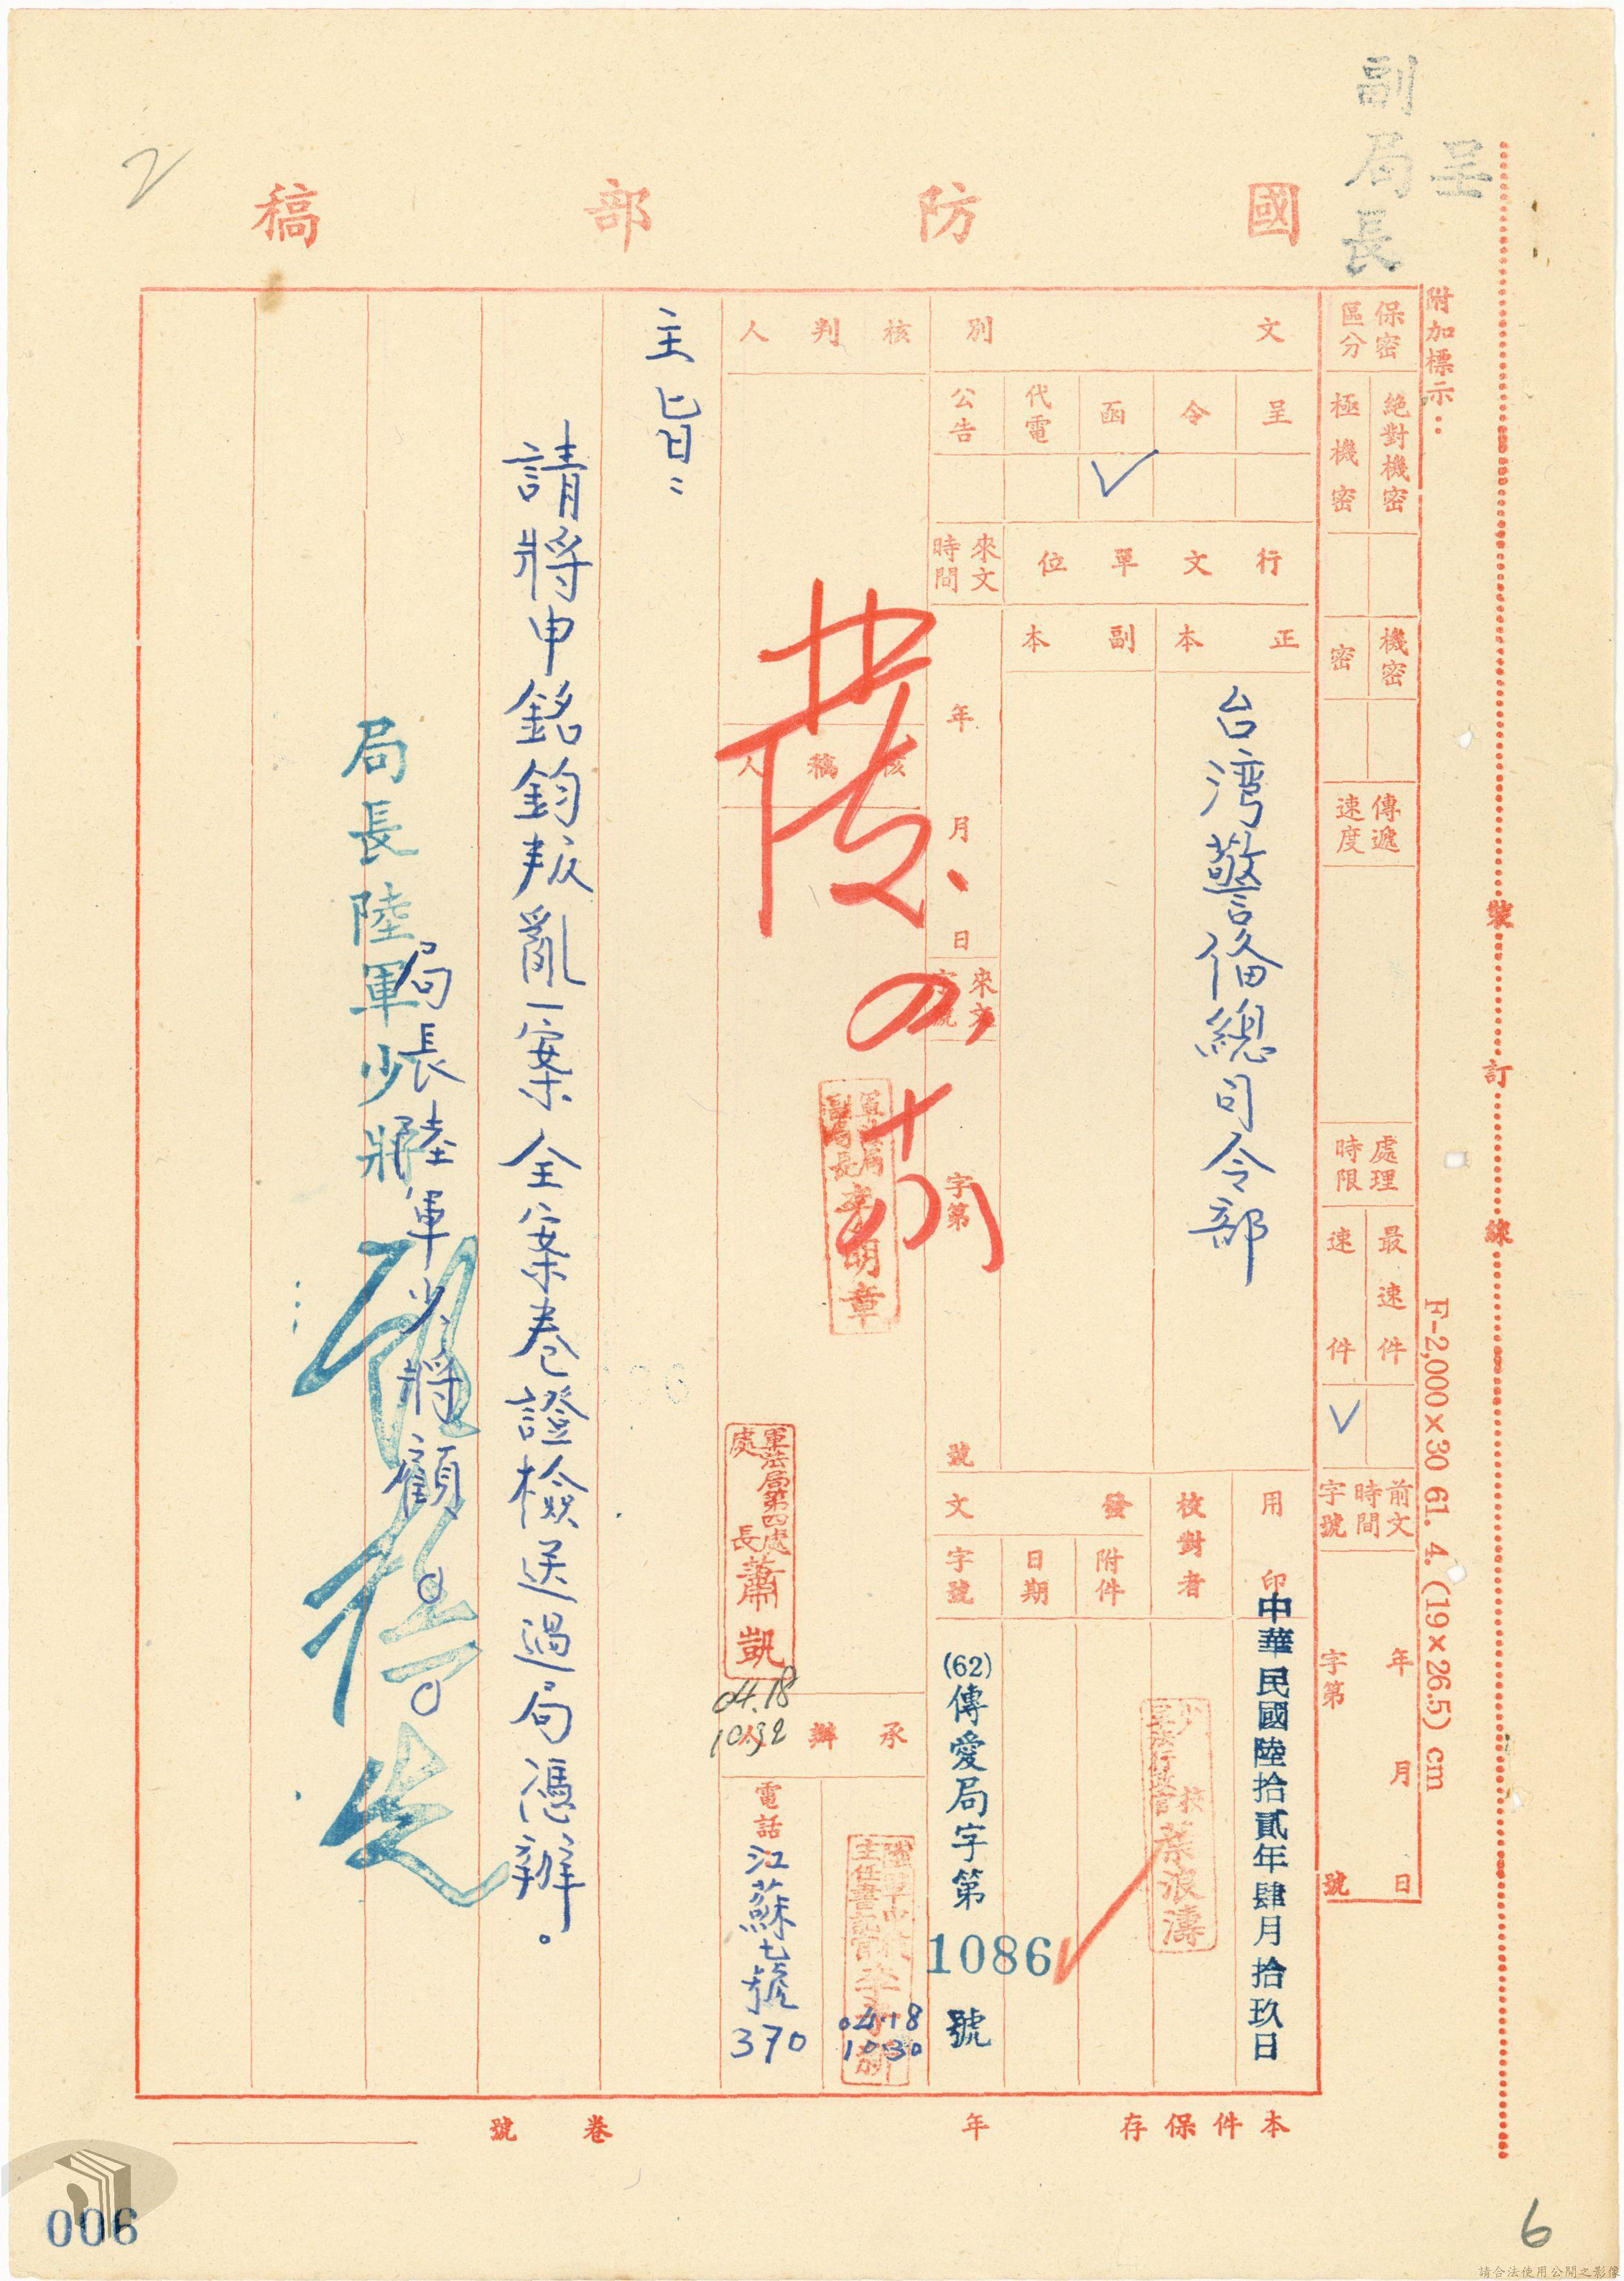 呈
副局長
國防部稿
裝訂線
附加標示：
F-2,000×30 61. 4. (19×26.5) cm
保密區分
絕對機密
極機密
機密
密
傳遞速度
處理時限
最速件
速件
✓
前文時間字號
年 月 日
字第 號
文別
呈
令
函 ✓
代電
公告
行文單位
正本
台湾警俻總司令部
副本
來文時間
年 月 日
來文字號
字第 號
用印
中華民國陸拾貳年肆月拾玖日
校對者
蔡浪濤
發文
附件
日期
字號
(62)傳愛局字第1086號
核判人
核稿人
軍法局副局長 李明章
軍法局第四處處長 蕭凱
04.18
1032
承辦人
04.18
1030
電話
江蘇七號
370
主旨：
請將申銘鈞叛亂一案全案卷證檢送過局憑辦。
局長陸軍少將顧○○
局長陸軍少將
本件保存 年
卷號
2
6
006
請合法使用公開之影像